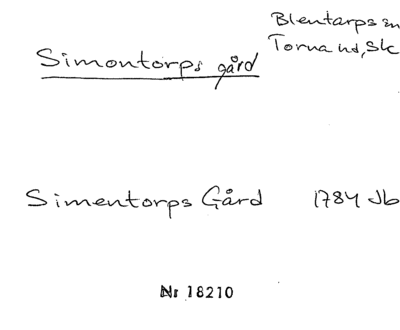 Blentarps sn
Simontorps gård
Torna hd, Sk
Simentorps Gård 1784 Jb
Nr 18210